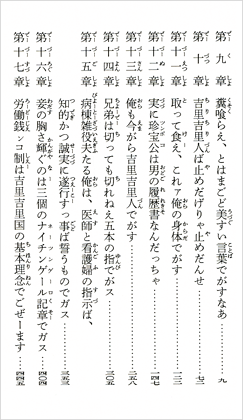 第九章 糞喰らえ、とはまどど美すい言葉でなあ……九
第十章 吉里吉里人止ば止めだげりゃ止めだんせ……七二
第十一章 取って食え、これァ俺の身体でがす……一二二
第十二章 実に珍宝公は男の履歴書なんだっちゃ……一四七
第十三章 俺も今がら吉里吉里人でがす……一九八
第十四章 兄弟は切っても切れねえ五本の指でがス……三〇五
第十五章 病棟雑役夫たる俺は、医師ど看護婦の指示ば、
知的かつ誠実に遂行すっ事ば誓うものでガス……三五三
第十六章 妾の胸さ輝ぐのは三個のナイチンゲール記章でガス……四〇四
第十七章 労働銭ンコ制は吉里吉里国の基本理念でごぜーます……四四五